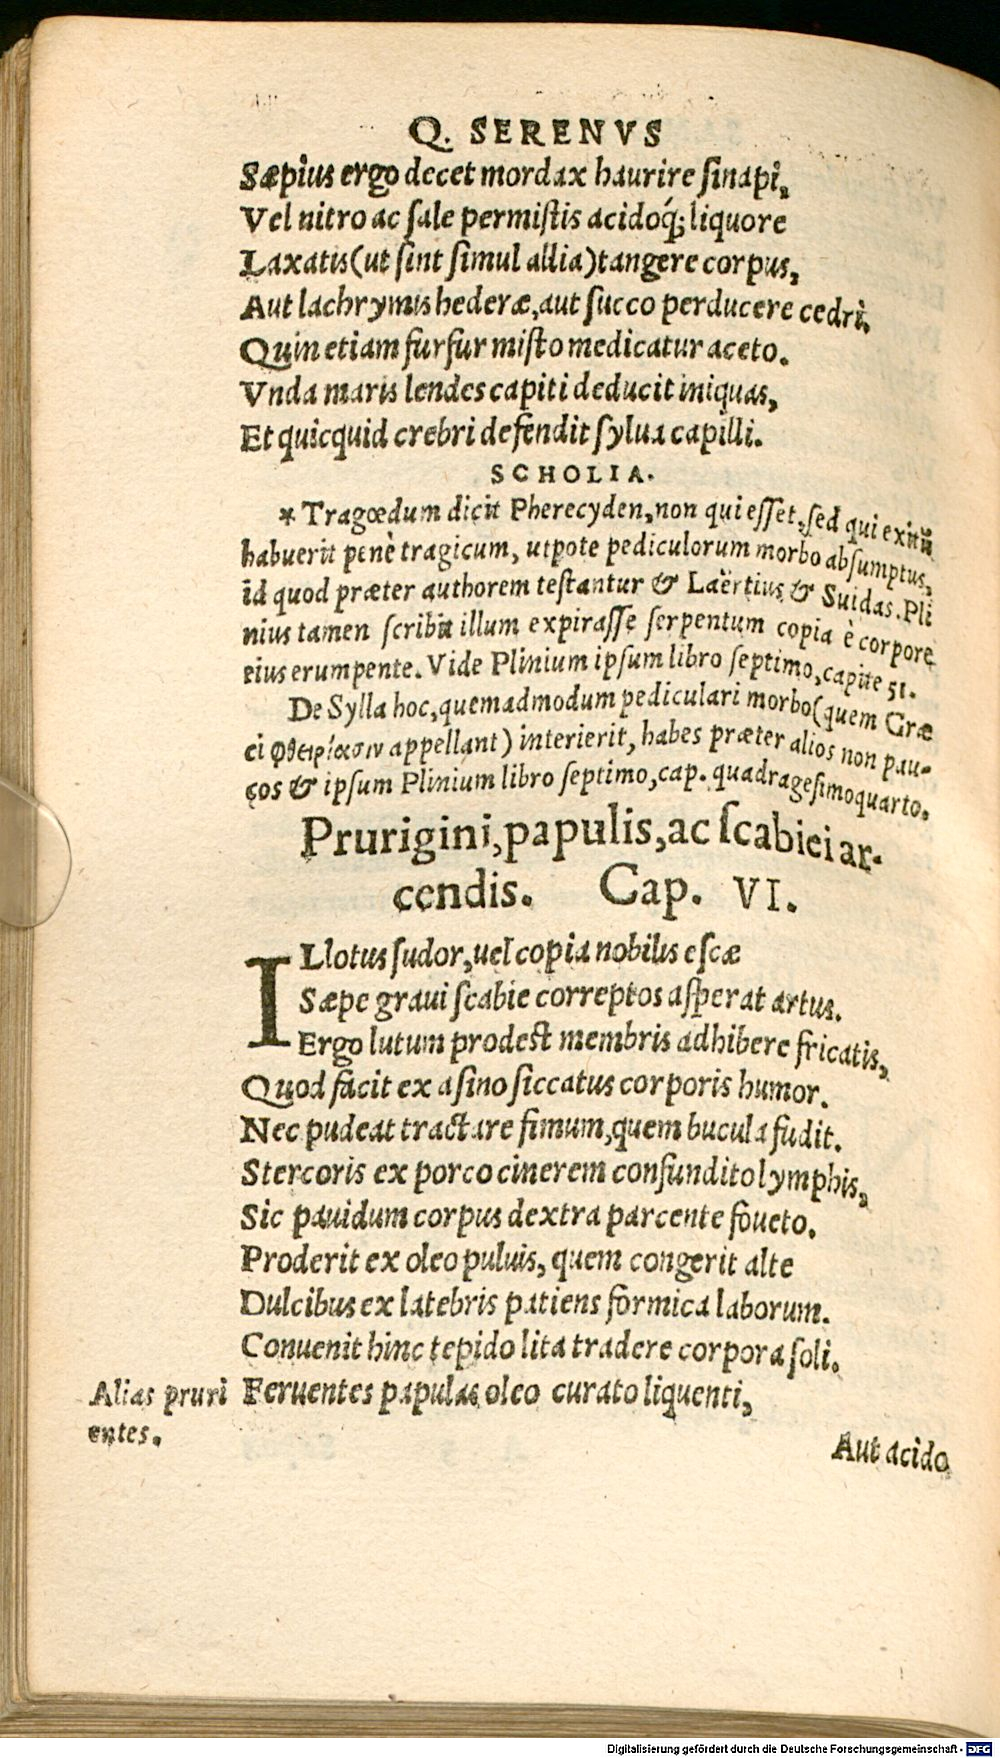 Q. SERENVS
Sæpius ergo decet mordax haurire ſinapi,
Vel nitro ac ſale permiſtis acidoq́; liquore
Laxatis (ut ſint ſimul allia) tangere corpus,
Aut lachrymis hederæ, aut ſucco perducere cedri.
Quin etiam furfur miſto medicatur aceto.
Vnda maris lendes capiti deducit iniquas,
Et quicquid crebri defendit ſylua capilli.
SCHOLIA.
* Tragœdum dicit Pherecyden, non qui eſſet, ſed qui exitũ
habuerit penè tragicum, utpote pediculorum morbo abſumptus,
id quod præter authorem teſtantur & Laërtius & Suidas. Pli
nius tamen ſcribit illum expiraſſe ſerpentum copia è corpore
eius erumpente. Vide Plinium ipſum libro ſeptimo, capite 51.
De Sylla hoc, quemadmodum pediculari morbo (quem Græ
ci φθειρίασιν appellant) interierit, habes præter alios non pau-
cos & ipſum Plinium libro ſeptimo, cap. quadrageſimoquarto.
Prurigini, papulis, ac ſcabiei ar-
cendis. Cap. VI.
ILlotus ſudor, uel copia nobilis eſcæ
Sæpe graui ſcabie correptos aſperat artus.
Ergo lutum prodeſt membris adhibere fricatis,
Quod facit ex aſino ſiccatus corporis humor.
Nec pudeat tractare fimum, quem bucula fudit.
Stercoris ex porco cinerem confundito lymphis,
Sic pauidum corpus dextra parcente foueto.
Proderit ex oleo puluis, quem congerit alte
Dulcibus ex latebris patiens formica laborum.
Conuenit hinc tepido lita tradere corpora ſoli.
Feruentes papulas oleo curato liquenti,
Alias pruri
entes.
Aut acido
Digitalisierung gefördert durch die Deutsche Forschungsgemeinschaft - DFG